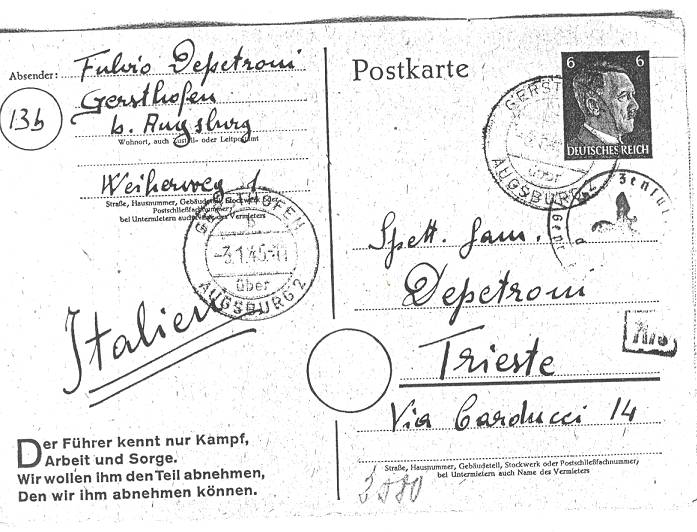 Absender: Fulvio Depetroni
Gersthofen
13b
b. Augsburg
Wohnort, auch Zustell- oder Leitpostamt
Weiherweg 1
Straße, Hausnummer, Gebäudeteil, Stockwerk oder
Postschließfachnummer;
bei Untermietern auch Name des Vermieters
GERSTHOFEN
b
-3.1.45-11
über
AUGSBURG 2
Italien
Der Führer kennt nur Kampf,
Arbeit und Sorge.
Wir wollen ihm den Teil abnehmen,
Den wir ihm abnehmen können.
Postkarte
6 6
DEUTSCHES REICH
über
AUGSBURG 2
Spett. Fam.
Depetroni
Trieste
Via Carducci 14
Straße, Hausnummer, Gebäudeteil, Stockwerk oder Postschließfachnummer;
bei Untermietern auch Name des Vermieters